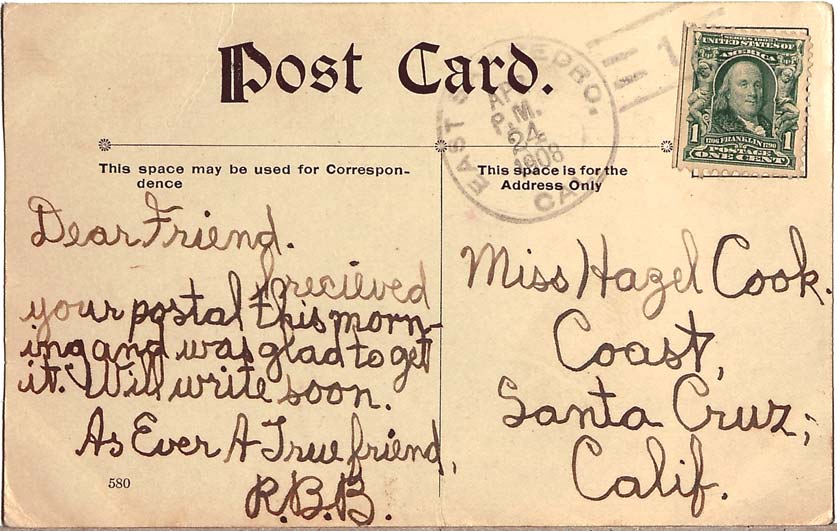 Post Card.
EAST SAN PEDRO, CAL.
APR
P.M.
24
1908
1
SERIES 1902
UNITED STATES OF
AMERICA
1706 FRANKLIN 1790
1 POSTAGE 1
ONE CENT
This space may be used for Correspon-
dence
This space is for the
Address Only
Dear Friend.
I recieved
your postal this morn-
ing and was glad to get
it. Will write soon.
As Ever A True friend,
R.B.B.
580
Miss Hazel Cook.
Coast,
Santa Cruz,
Calif.